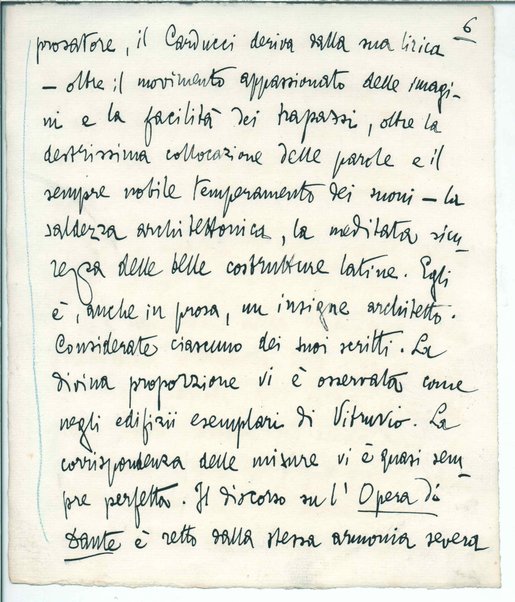 6
prosatore, il Carducci deriva dalla sua lirica
– oltre il movimento appassionato delle imagi-
ni e la facilità dei trapassi, oltre la
destrissima collocazione delle parole e il
sempre nobile temperamento dei suoni – la
saldezza architettonica, la meditata sicu-
rezza delle belle costrutture latine. Egli
è, anche in prosa, un insigne architetto.
Considerate ciascuno dei suoi scritti. La
divina proporzione vi è osservata come
negli edifizii esemplari di Vitruvio. La
corrispondenza delle misure vi è quasi sem-
pre perfetta. Il discorso su l' Opera di
Dante è retto dalla stessa armonia severa